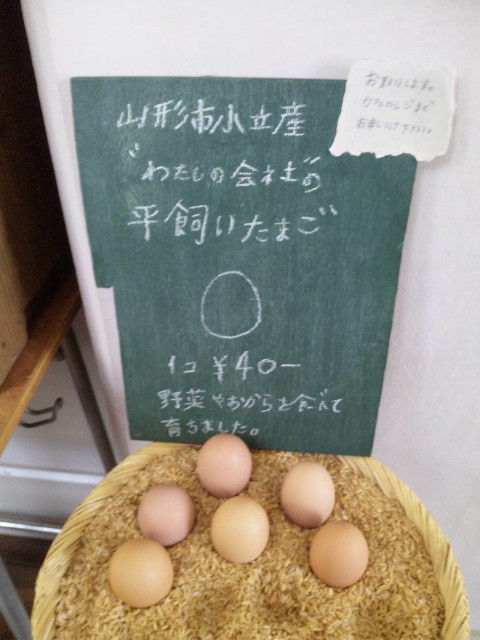 山形市小立産
"わたしの会社"の
平飼いたまご
1コ ¥40-
野菜やおからを食べて
育ちました。
お取りします。
カフェのレジまで
お申しつけ下さい。